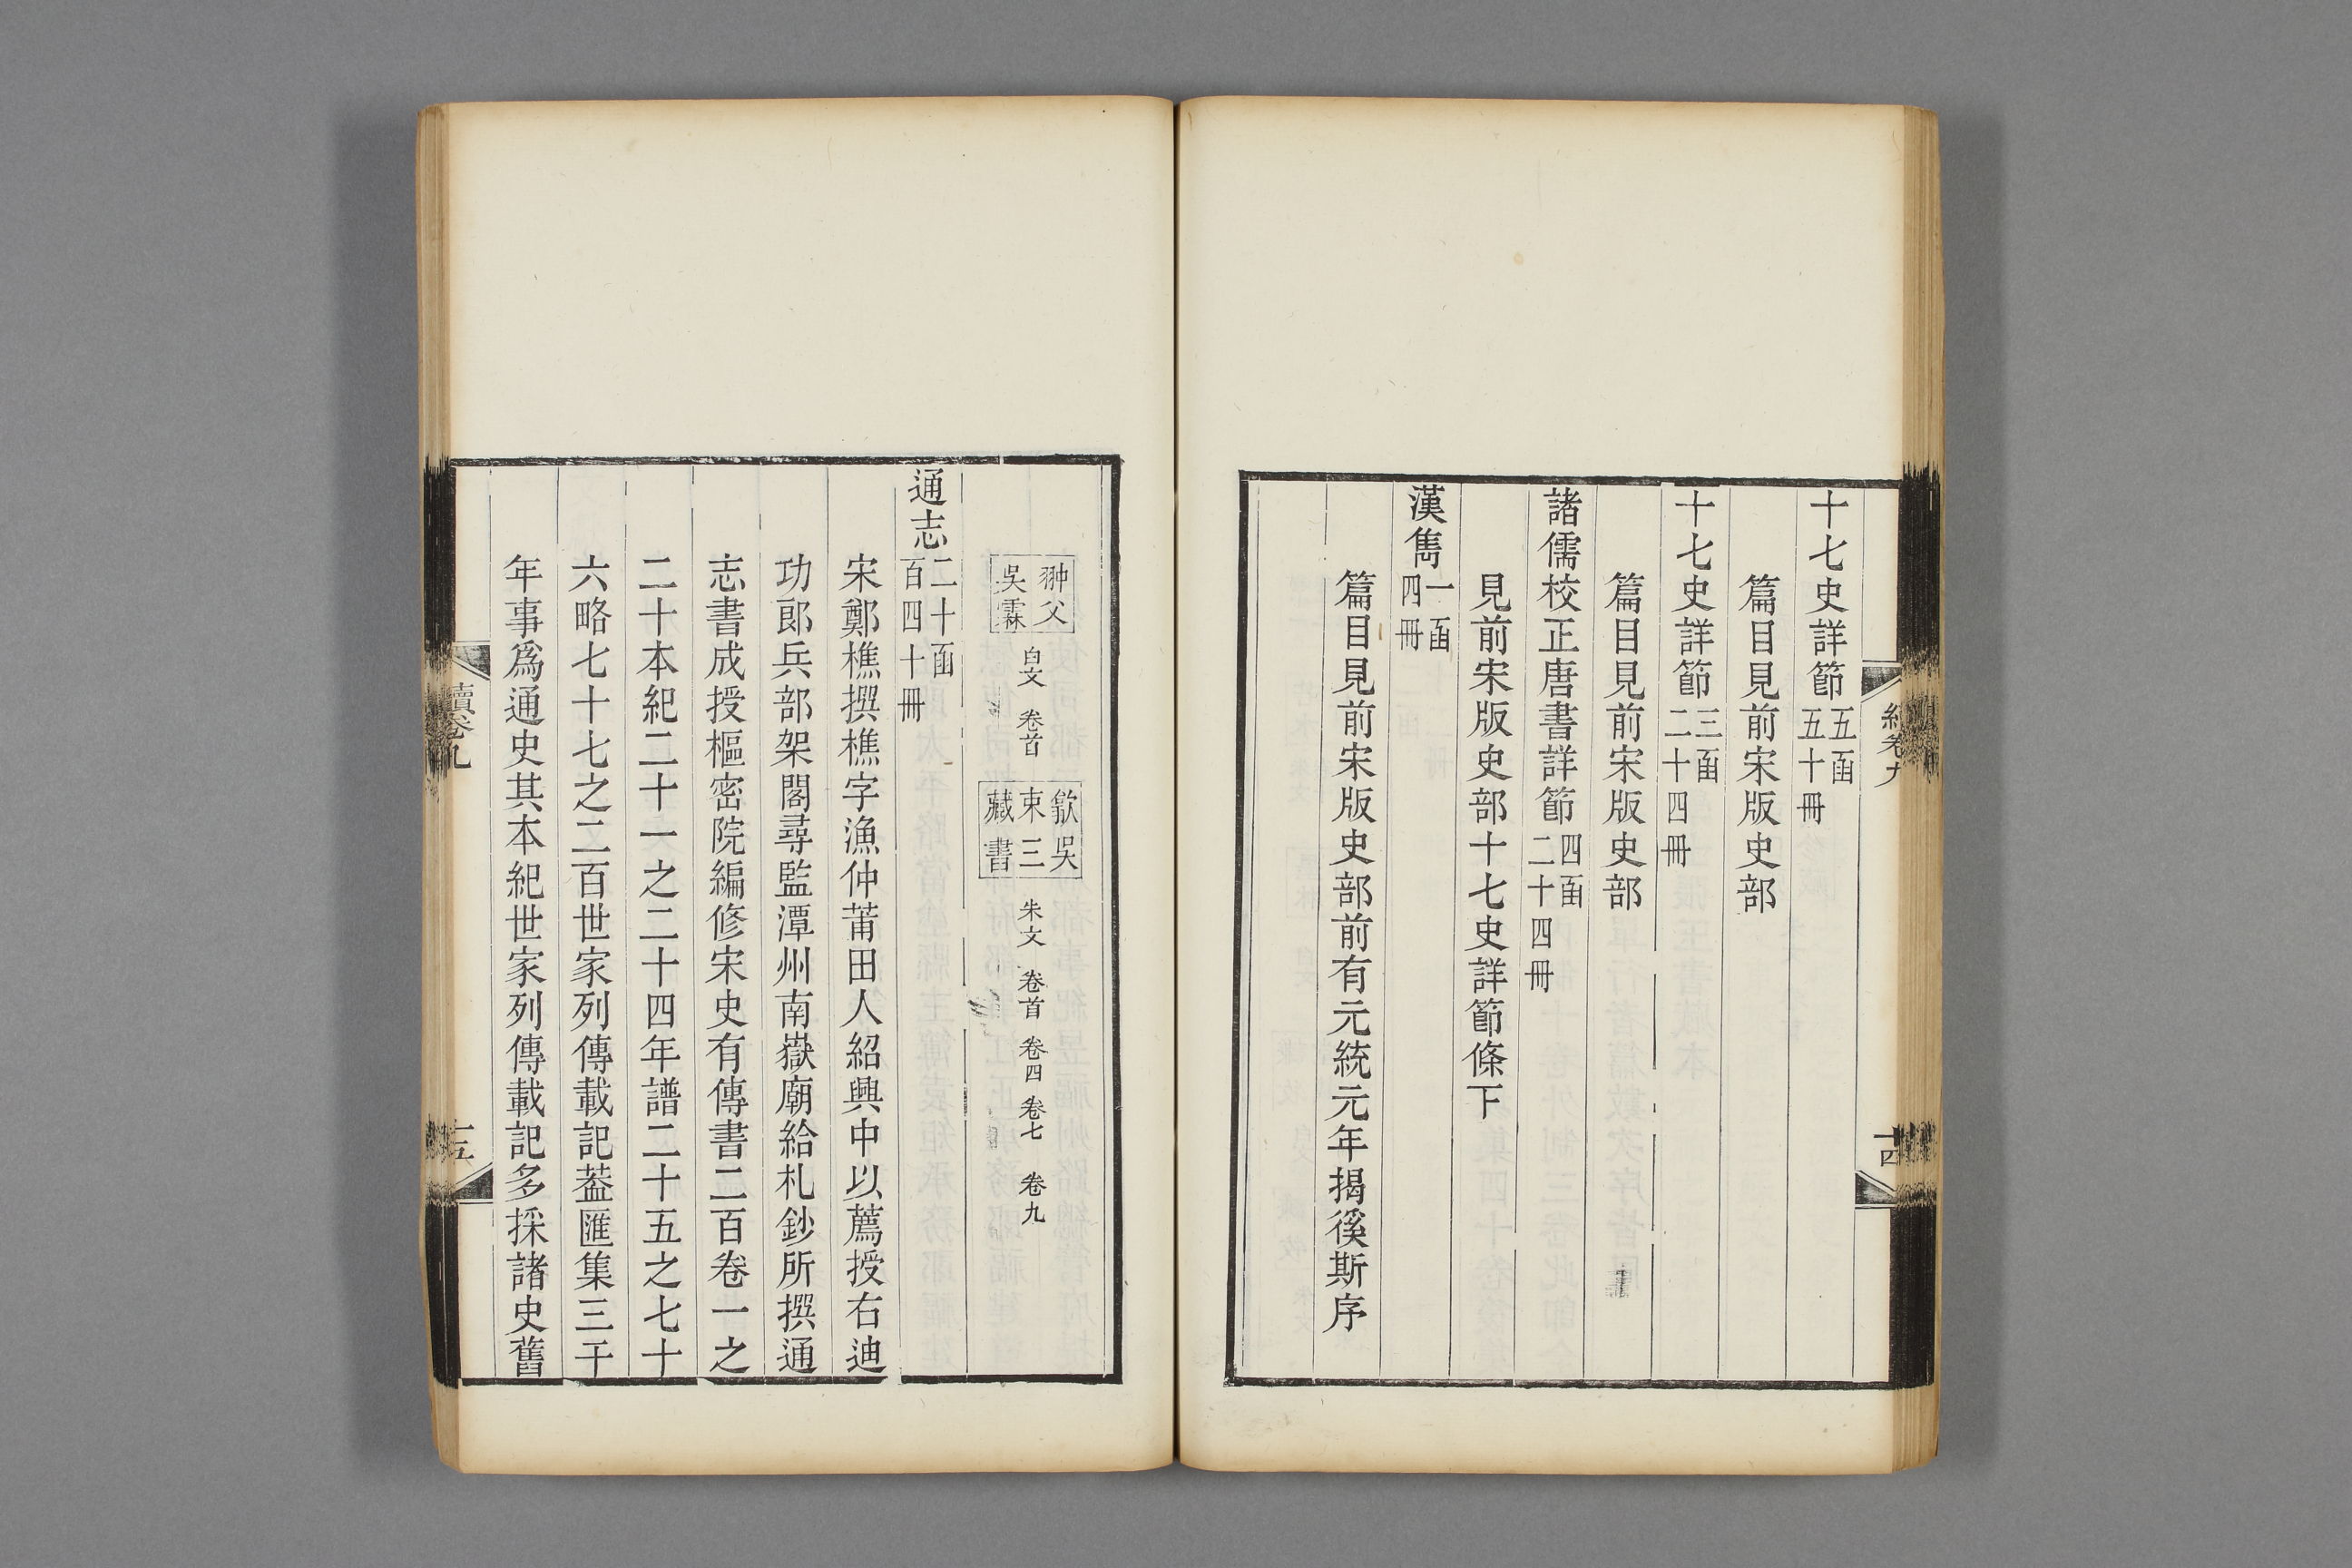 十七史詳節五函五十冊
篇目見前宋版史部
十七史詳節三函二十四冊
篇目見前宋版史部
諸儒校正唐書詳節四函二十四冊
見前宋版史部十七史詳節條下
漢雋一函四冊
篇目見前宋版史部前有元統元年揭傒斯序
卷九
十四
翀父吳霦 白文 卷首 歙吳束三藏書 朱文 卷首 卷四 卷七 卷九
通志二十函百四十冊
宋鄭樵撰樵字漁仲莆田人紹興中以薦授右迪
功郎兵部架閣尋監潭州南嶽廟給札鈔所撰通
志書成授樞密院編修宋史有傳書二百卷一之
二十本紀二十一之二十四年譜二十五之七十
六略七十七之二百世家列傳載記葢匯集三千
年事爲通史其本紀世家列傳載記多採諸史舊
續卷九
十五